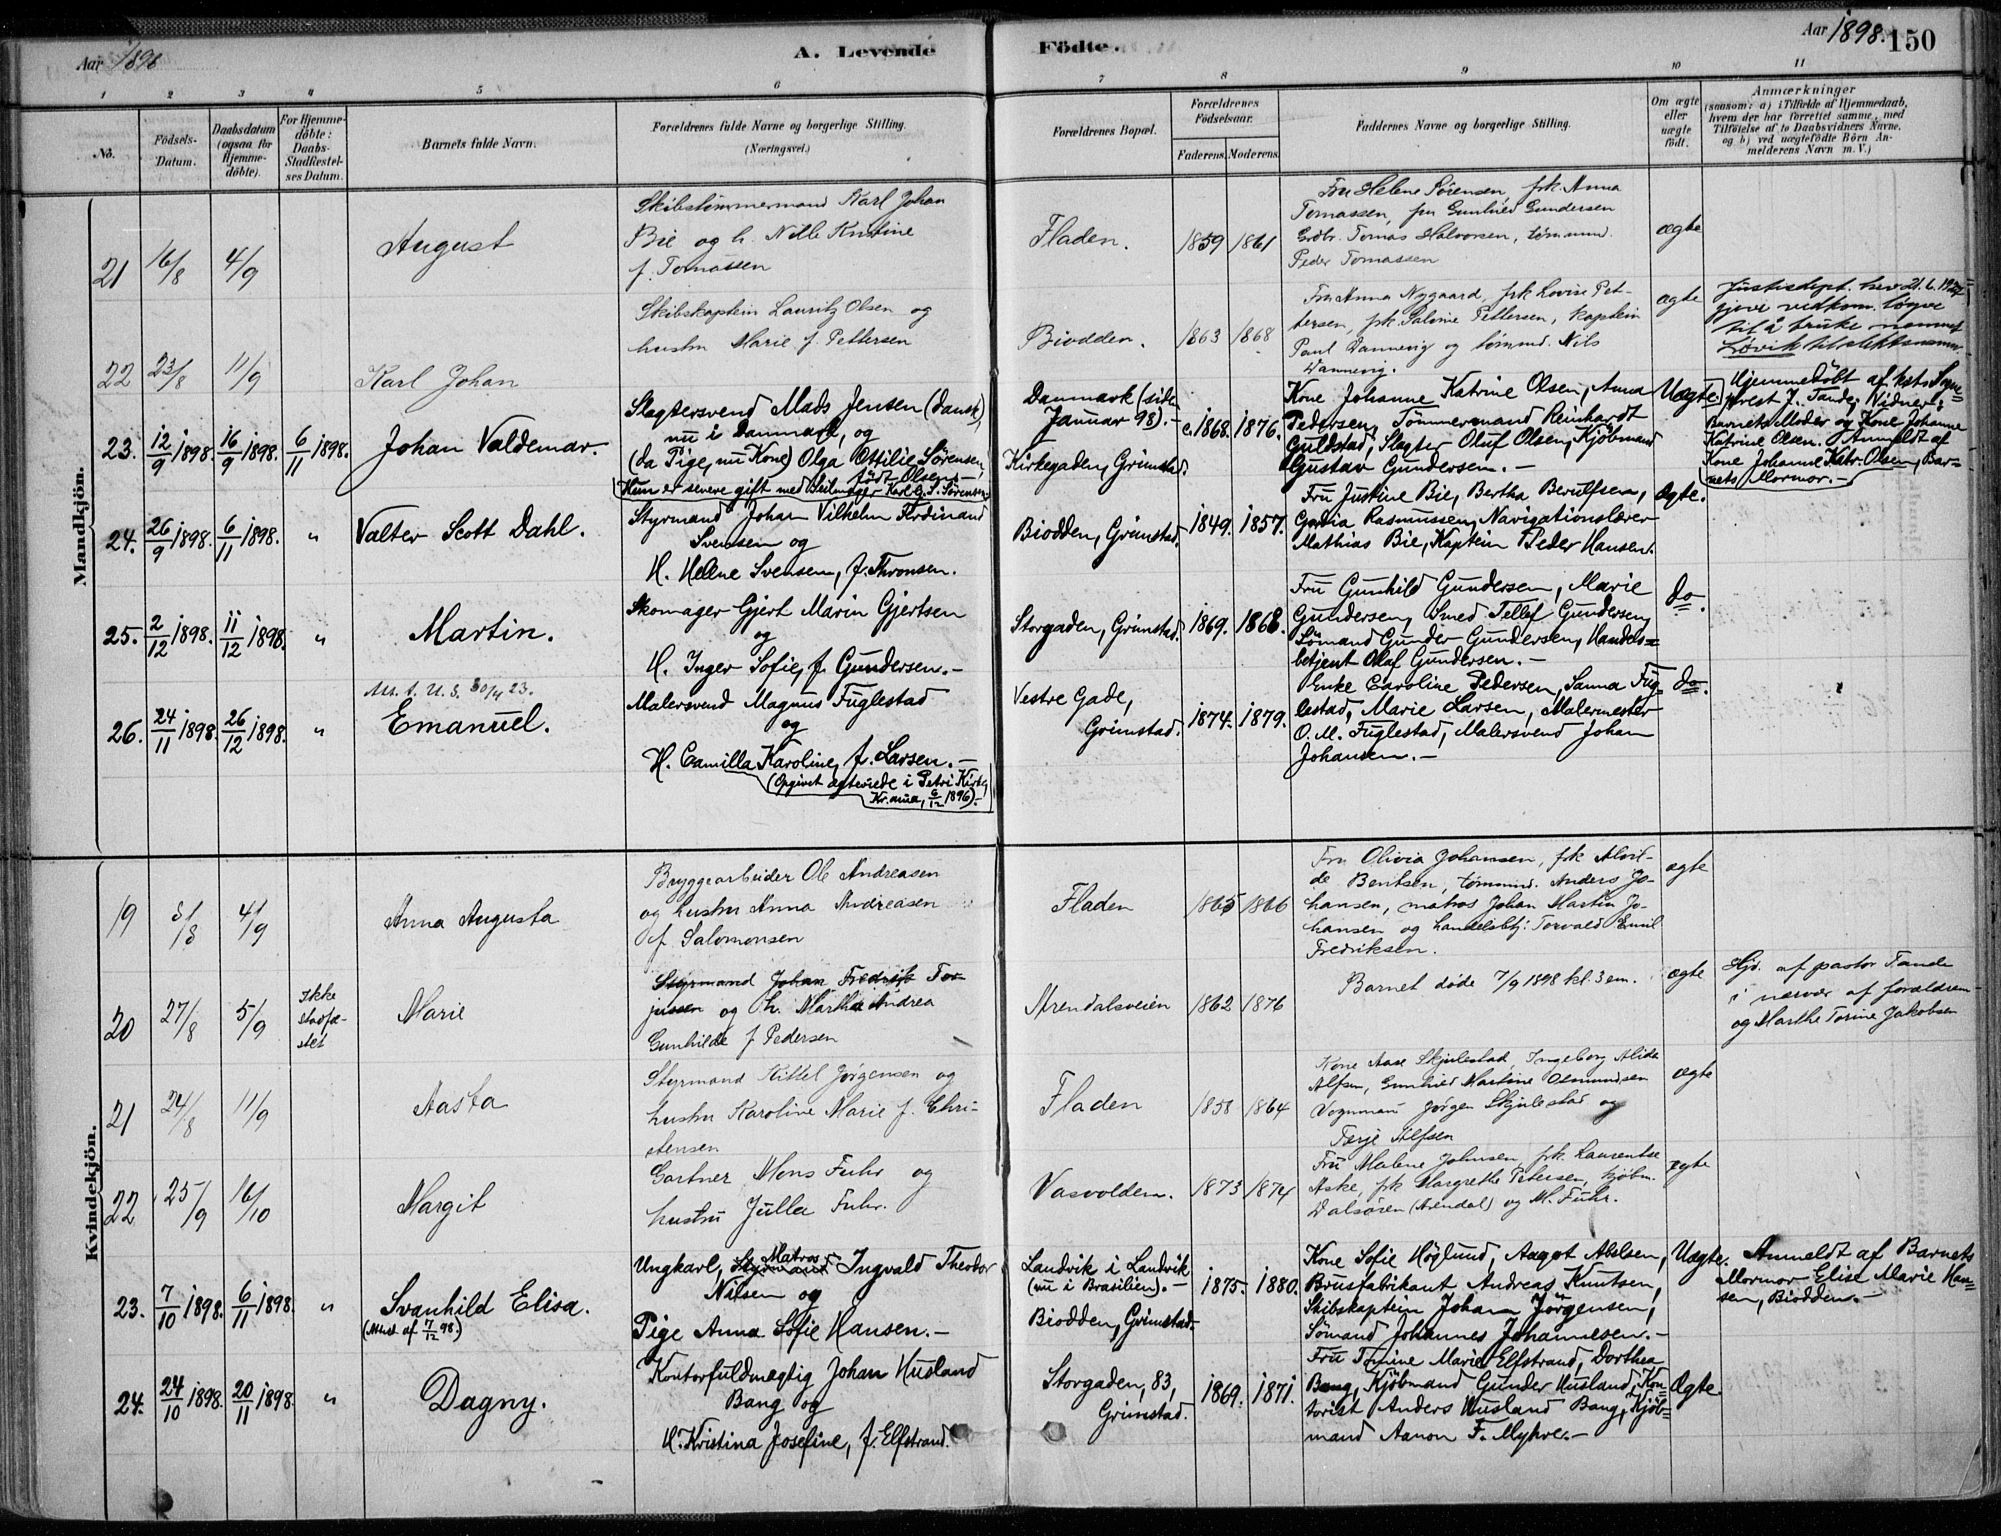 Aar 1898
A. Levende
Födte.
Aar 1898. 150
1 2 3 4 5 6 7 8 9 10 11
No.
Födsels-
Datum.
Daabsdatum
(ogsaa for
Hjemme-
döbte).
For Hjemme-
döbte:
Daabs-
Stadfæstel-
ses Datum.
Barnets fulde Navn.
Forældrenes fulde Navne og borgerlige Stilling.
(Næringsvei.)
Forældrenes Bopæl.
Forældrenes
Födselsaar.
Faderens. Moderens.
Faddernes Navne og borgerlige Stilling.
Om ægte
eller
uægte
født.
Anmærkninger
(saasom: a) i Tilfælde af Hjemmedaab,
hvem der har forrettet samme, med
Tilföielse af to Daabsvidners Navne,
og b) ved uægtefödte Börn An-
melderens Navn m. V.)
Mandkjön.
21 16/8 4/9
August
Skibstømmermand Karl Johan
Bie og h. Nille Kristine
f. Tomassen
Fladen. 1859 1861
Fru Helene Sørensen, frk. Anna
Tomassen, fru Gunhild Gundersen
Tomas Halvorsen, tømmd.
Peder Tomassen
ægte
22 23/8 11/9
Karl Johan
Skibskaptein Lauritz Olsen og
hustru Marie f. Pettersen
Biodden. 1863 1868
Fru Anna Nygaard, frk. Lovise Pet-
tersen, frk. Palmie Pettersen, kaptein
Paul Dannevig og tømmd. Nils
Dannevig.
ægte
Justisdept. bev. 21.6.
gjeve vedkom. løgve
til å bruke namnet
Løvik til slektsnamn.
23. 12/9 1898. 16/9 1898. 6/11 1898.
Johan Valdemar.
Slagtersvend Mads Jensen (dansk)
nu i Danmark, og
(da Pige, nu Kone) Olga Ottilie Sörensen,
födt Olsen.-
Hun er senere gift med Seilmager Karl G. S. Sörensen
Danmark (siden
Januar 98).-
Kirkegaden, Grimstad.
c. 1868. 1876.
Kone Johanne Katrine Olsen, Anna
Pedersen, Tömmermand Reinhardt
Guldstad, Slagter Oluf Olsen, Kjöbmand
Gustav Gundersen.-
Uægte.
Hjemmedöbt af kst. Sogne=
prest J. Tande; Vidner:
Barnets Moder og Kone Johanne
Katrine Olsen. Anmeldt af
Kone Johanne Katr. Olsen, Bar-
nets Mormor.-
24. 26/9 1898. 6/11 1898. "
Valter Scott Dahl.
Styrmand Johan Vilhelm Ferdinand
Svensen og
H. Helene Svensen, f. Thronsen.
Biodden, Grimstad. 1849. 1857.
Fru Justine Bie, Bertha Berulfsen,
Rasmussen, Navigationslærer
Mathias Bie, Kaptein Peder Hansen.
Ægte.
25. 2/12 1898. 11/12 1898. "
Martin.
Skomager Gjert Marin Gjertsen
og
H. Inger Sofie, f. Gundersen.-
Storgaden, Grimstad. 1869. 1868.
Fru Gunhild Gundersen, Marie
Gundersen, Smed Tellef Gundersen,
Sömand Gunder Gundersen, Handels=
betjent Olaf Gundersen.-
do.
26. 24/11 1898. 26/12 1898. "
30/4 23.
Emanuel.
Malersvend Magnus Fuglestad
og
H. Camilla Karoline, f. Larsen.-
(Opgivet ægteviede i Petri Kirke,
Kr.ania, 6/12 1896).-
Vestre Gade,
Grimstad. 1874. 1879.
Enke Caroline Pedersen, Sanna Fug-
lestad, Marie Larsen, Malermester
O. M. Fuglestad, Malersvend Johan
Johansen.-
do.
Kvindekjön.
19 31/8 4/9
Anna Augusta
Bryggearbeider Ole Andreasen
og hustru Anna Andreasen
f. Salomonsen
Fladen 1865 1866
Fru Olivia Johansen, frk. Alvil-
de Bentsen, tømmd. Anders Jo-
hansen, matros Johan Martin Jo-
hansen og handelsbtj: Torvald Emil
Fredriksen.
ægte
20 27/8 5/9
Ikke
stadfæ-
stet
Marie
Styrmand Johan Fredrik Tor-
jussen og h. Marthe Andrea
Gunhilde f. Pedersen
Arendalsveien 1862 1876
Barnet døde 7/9 1898 kl. 3 em.
ægte
Hjd. af pastor Tande
i nærvær af forældrene
og Marthe Torine Jakobsen
21 24/8 11/9
Aasta
Styrmand Kittel Jørgensen og
hustru Karoline Marie f. Chri-
stensen
Fladen 1858 1864
Kone Aase Skjulestad, Ingeborg Alida
Alfsen, Gunhild Martine Osmundsen
Vognmand Jørgen Skjulestad og
Terje Alfsen
ægte
22 25/9 16/10
Margit
Gartner Mons Fuhr og
hustru Julla Fuhr.
Vasvolden. 1873 1874
Fru Malene Johnsen, frk. Laurentse
Aske, frk Margrethe Petersen, kjøbm.
Dalsören (Arendal) og M. Fuhr.
ægte
23. 7/10 1898. 6/11 1898. "
Svanhild Elisa.
(Attest af 7/12 98.)
Ungkarl, Styrmand Matros Ingvald Theodor
Nilsen og
Pige Anna Sofie Hansen.-
Landvik i Landvik
(nu i Brasilien).-
Biodden, Grimstad.
1875. 1880.
Kone Sofie Höglund, Aagot Abelsen,
Brusfabrikant Andreas Knutsen,
Skibskaptein Johan Jörgensen,
Sömand Johannes Johannesen.-
Uægte.
Anmeldt af Barnets
Mormor Elise Marie Han=
sen, Biodden.-
24. 24/10 1898. 20/11 1898. "
Dagny.
Kontorfuldmægtig Johan Husland
Bang og
H. Kristina Josefine, f. Elfstrand.
Storgaden, 83,
Grimstad. 1869. 1871.
Fru Tomine Marie Elfstrand, Dorthea
Bang, Kjöbmand Gunder Husland, Kon=
torist Anders Husland Bang, Kjöb=
mand Aanon F. Myhre.-
Ægte.